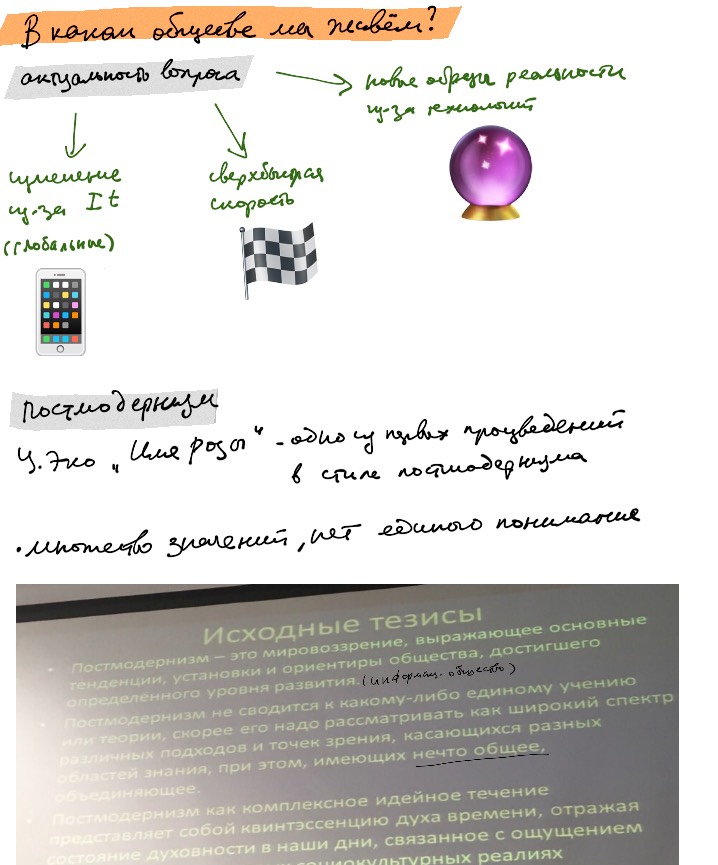 В каком обществе мы живём?
актуальность вопроса
новые образы реальности
из-за технологий
изменение
из-за It
(глобальные)
сверхбыстрая
скорость
постмодернизм
У. Эко „Имя розы" - одно из первых произведений
в стиле постмодернизма
• множество значений, нет единого понимания
Исходные тезисы
• Постмодернизм – это мировоззрение, выражающее основные
тенденции, установки и ориентиры общества, достигшего
определённого уровня развития. (информац. общество)
• Постмодернизм не сводится к какому-либо единому учению
или теории, скорее его надо рассматривать как широкий спектр
различных подходов и точек зрения, касающихся разных
областей знания, при этом, имеющих нечто общее,
объединяющее.
• Постмодернизм как комплексное идейное течение
представляет собой квинтэссенцию духа времени, отражая
состояние духовности в наши дни, связанное с ощущением
социокультурных реалиях